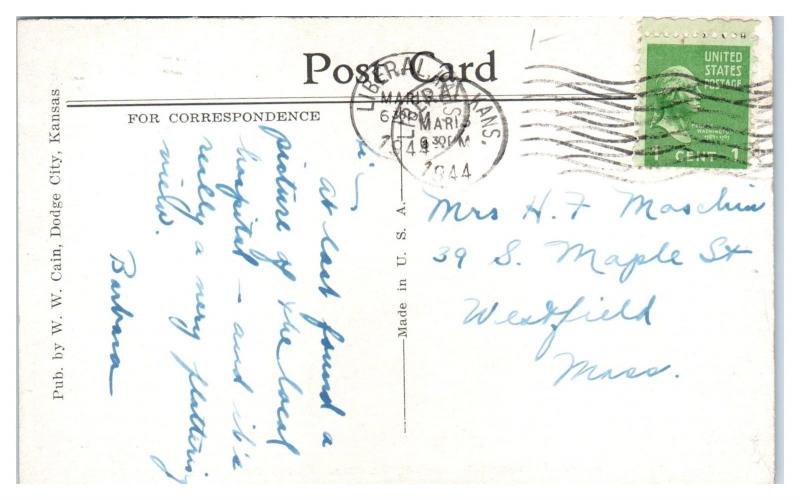 Post Card
FOR CORRESPONDENCE
Pub. by W. W. Cain, Dodge City, Kansas
Made in U. S. A.
LIBERAL, KANS.
MAR 13
6 30 PM
1944
LIBERAL, KANS.
MAR 13
6 30 PM
1944
UNITED
STATES
POSTAGE
WASHINGTON
1 CENT 1
at last found a
picture of the local
hospital – and it's
really a very flattering
view.
Barbara
Mrs H. F
39 S. Maple St
Westfield
Mass.